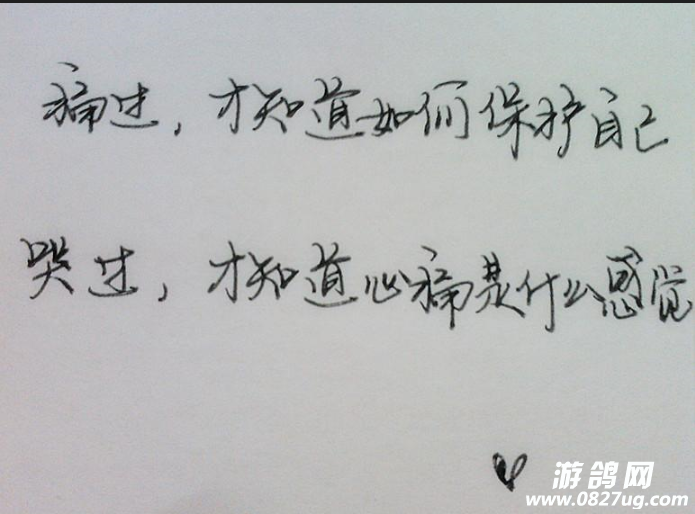 痛过，才知道如何保护自己
哭过，才知道心痛是什么感觉
游鸽网
www.0827ug.com